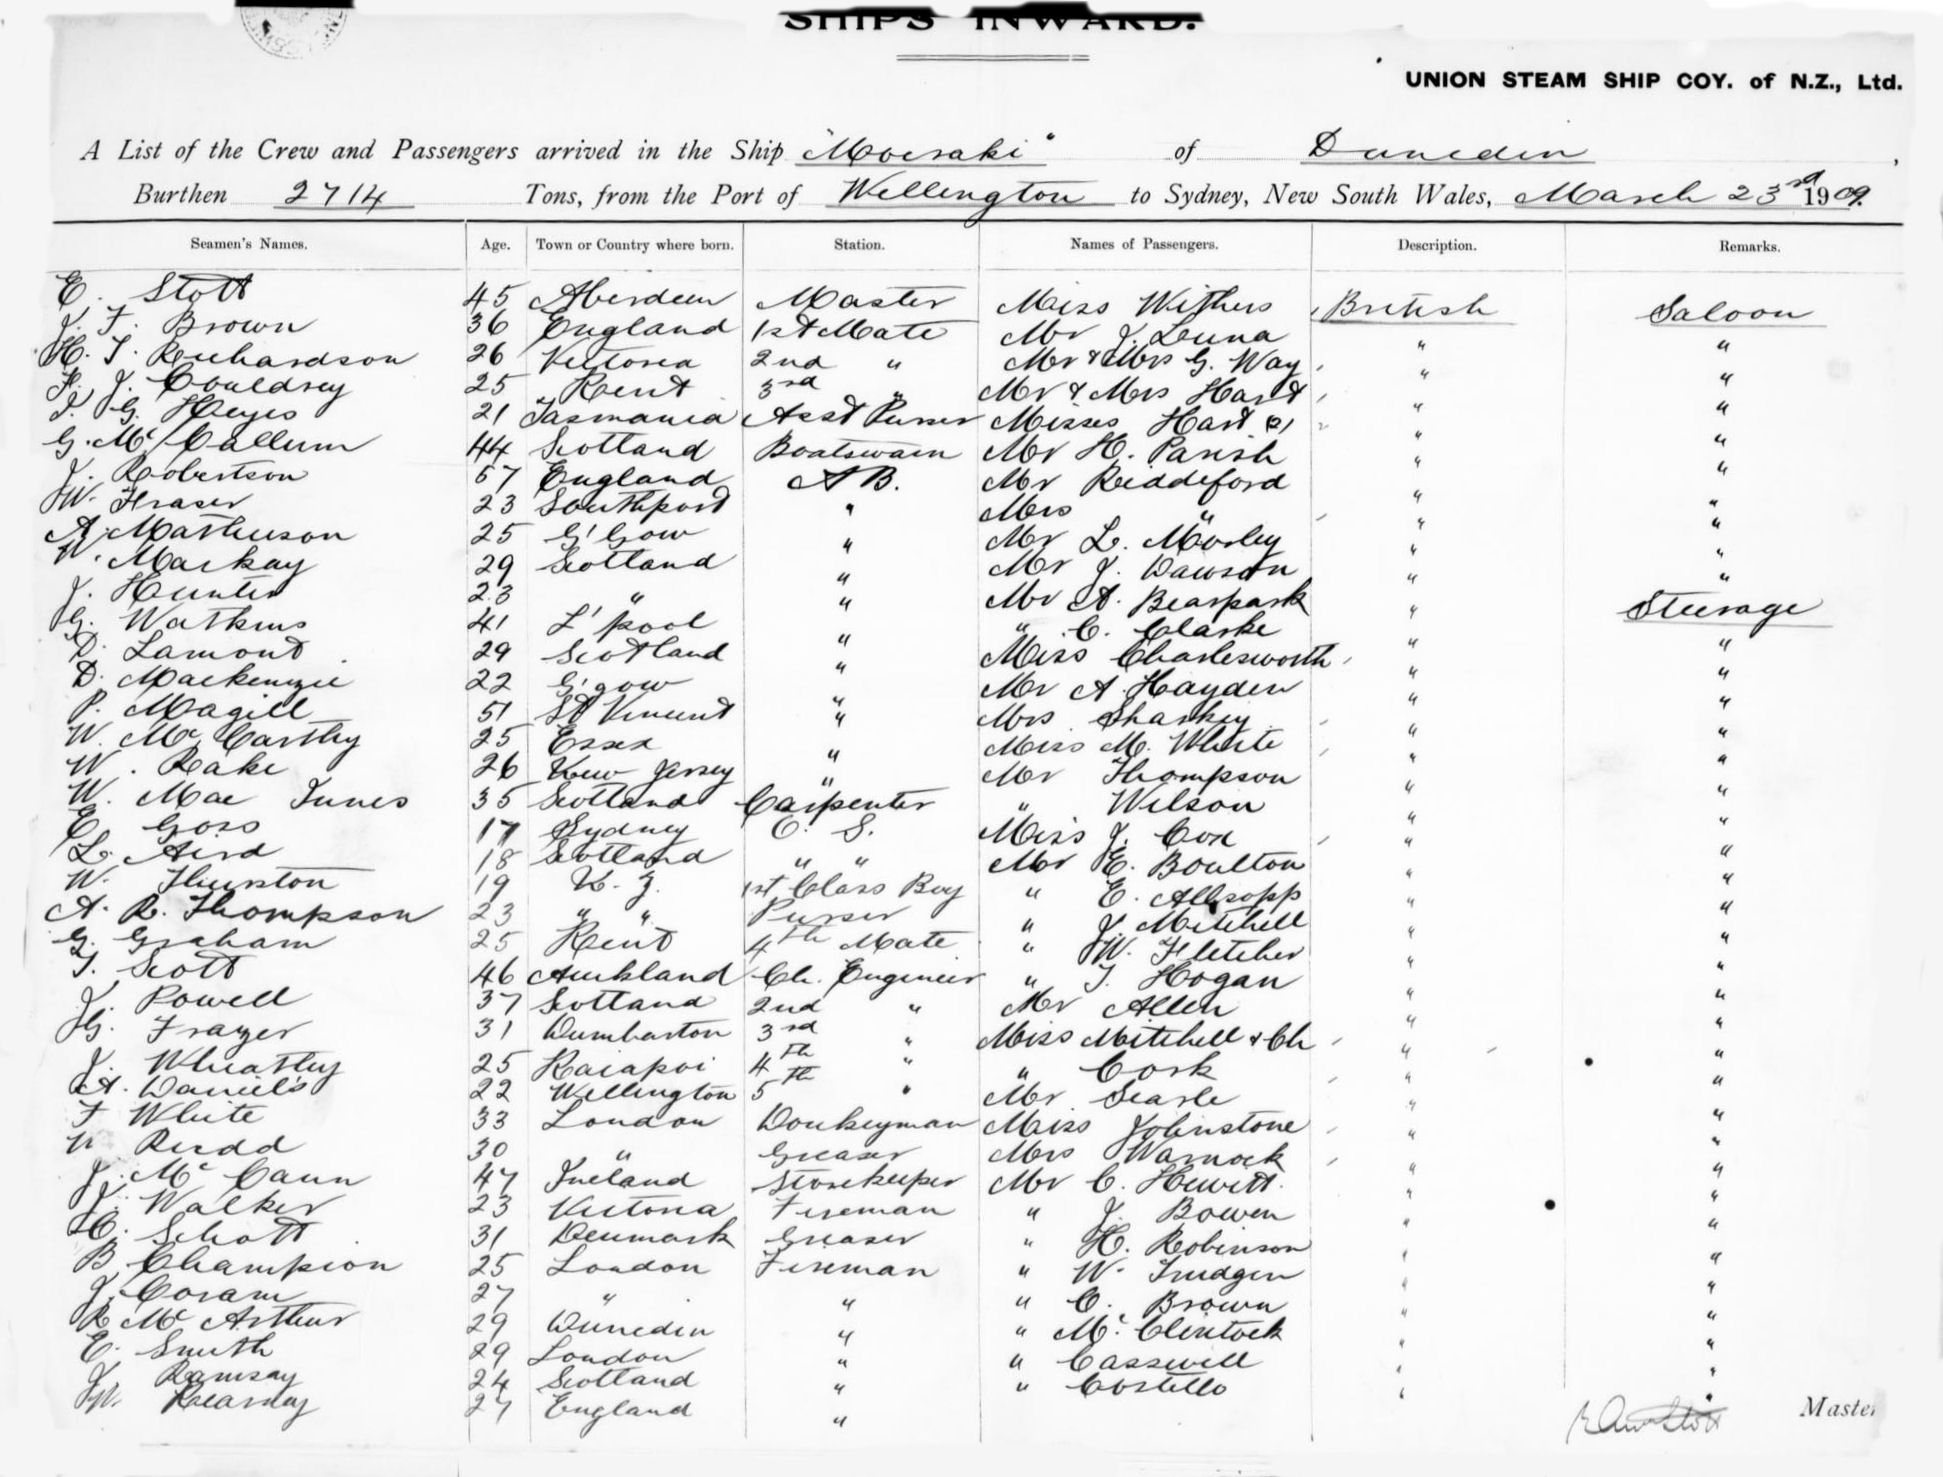 SHIPS INWARD.
UNION STEAM SHIP COY. of N.Z., Ltd.
A List of the Crew and Passengers arrived in the Ship "Moeraki" of Dunedin,
Burthen 2714 Tons, from the Port of Wellington to Sydney, New South Wales, March 23rd 1909.
Seamen's Names. Age. Town or Country where born. Station. Names of Passengers. Description. Remarks.
E. Stott 45 Aberdeen Master Miss Withers British Saloon
J. F. Brown 36 England 1st Mate Mr J. " "
H. T. Richardson 26 Victoria 2nd " Mr & Mrs G. Way " "
F. J. Couldrey 25 Kent 3rd " Mr & Mrs Hart " "
G. Heyes 21 Tasmania Asst Purser Misses Hart (2) " "
G. Mc Callum 44 Scotland Boatswain Mr H. Parish " "
J. Robertson 57 England A B. Mr Riddeford " "
W. Fraser 23 Southport " Mrs " " "
A. Mathieson 25 G'Gow " Mr L. Morley " "
W. Mackay 29 Scotland " Mr J. Dawson " "
J. Hunter 23 " " Mr A. Bearpark " Steerage
G. Watkins 41 L'pool " " C. Clarke " "
D. Lamont 29 Scotland " Miss Charlesworth " "
D. Mackenzie 22 G'gow " Mr A. Hayden " "
P. Magill 51 St Vincent " Mrs Sharkey " "
W. Mc Carthy 25 Essex " Miss M. White " "
W. Rake 26 New Jersey " Mr Thompson " "
W. Mac Innes 35 Scotland Carpenter " Wilson " "
E. Goss 17 Sydney O. S. Miss J. Cox " "
L. Aird 18 Scotland " " Mr E. Boulton " "
W. Thurston 19 N. Z. 1st Class Boy " E. Allsopp " "
A. R. Thompson 23 " " Purser " J. Mitchell " "
G. Graham 25 Kent 4th Mate " W. Fletcher " "
T. Scott 46 Auckland Ch. Engineer " T. Hogan " "
J. Powell 37 Scotland 2nd " Mr Allen " "
G. Frazer 31 Dumbarton 3rd " Miss Mitchell & Ch " "
J. Wheatley 25 Kaiapoi 4th " " Cork " "
A. Daniels 22 Wellington 5th " Mr Searle " "
F White 33 London Donkeyman Miss Johnstone " "
W Rudd 30 " Greaser Mrs Warnock " "
J. Mc Cann 47 Ireland Storekeeper Mr C. Hewitt " "
J. Walker 23 Victoria Fireman " J. Bowen " "
C. Schott 31 Denmark Greaser " H. Robinson " "
B Champion 25 London Fireman " W. Trudgen " "
J. Coram 27 " " " C. Brown " "
R Mc Arthur 29 Dunedin " " Mc Clintock " "
E. Smith 29 London " " Casswell " "
J Ramsay 24 Scotland " " Costello " "
W. Kearney 27 England "
Master